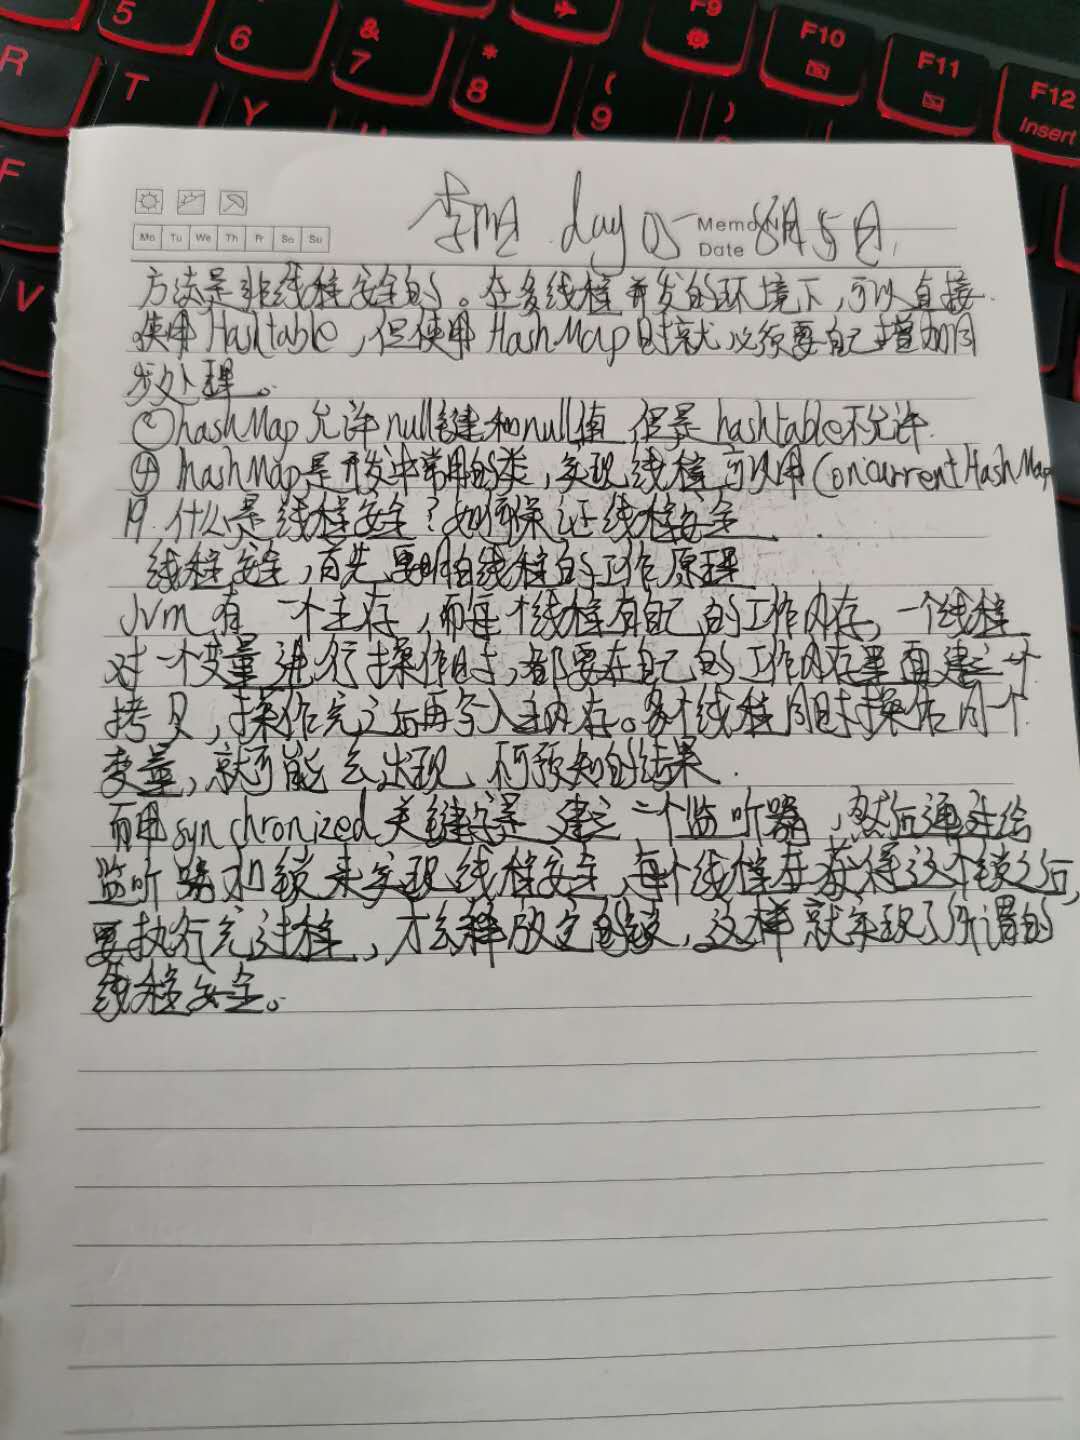 5 6 & 7 * 8 ( 9 ) F9 F10 F11 F12 Insert
R T Y
F
V
Mo Tu We Th Fr Sa Su
李 day 05 Memo No.
Date 8月5日.
方法是非线程安全的。在多线程并发的环境下,可以直接
使用Hashtable,但使用HashMap时就必须要自己增加同
步处理。
hashMap允许null键和null值 但是hashtable不允许.
④ hashMap是开发中常用的类,实现线程可以用ConcurrentHashMap
19.什么是线程安全?如何保证线程安全
线程安全,首先要明白线程的工作原理
Jvm有一个主存,而每个线程有自己的工作内存,一个线程
对一个变量进行操作时,都要在自己的工作内存里面建立一个
拷贝,操作完之后再写入主内存。多个线程同时操作同一个
变量,就可能会出现不可预知的结果.
而用synchronized关键字是建立一个监听器,然后通过给
监听器加锁来实现线程安全,每个线程在获得这个锁之后,
要执行完过程,才会释放它的锁,这样就实现了所谓的
线程安全。